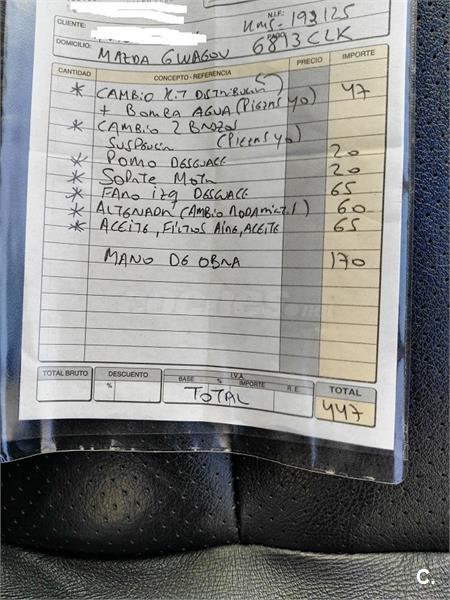 N.I.F.:
CLIENTE: Kms.- 192125
PAGO
DOMICILIO: MAZDA 6WAGOU 6813CLK
CANTIDAD CONCEPTO - REFERENCIA PRECIO IMPORTE
* CAMBIO K.T DISTRIBUCION 47
+ BOMBA AGUA (PIEZAS YO)
* CAMBIO 2 BRAZOS
SUSPENSION (PIEZAS YO)
* POMO DESGUACE 20
* SOPORTE MOTOR 20
* FARO IZQ DESGUACE 65
* ALTERNADOR (CAMBIO RODAMIENTO) 60
* ACEITE, FILTROS AIRE, ACEITE 65
MANO DE OBRA 170
TOTAL BRUTO DESCUENTO I.V.A. TOTAL
% BASE % IMPORTE R.E.
TOTAL 447
C.